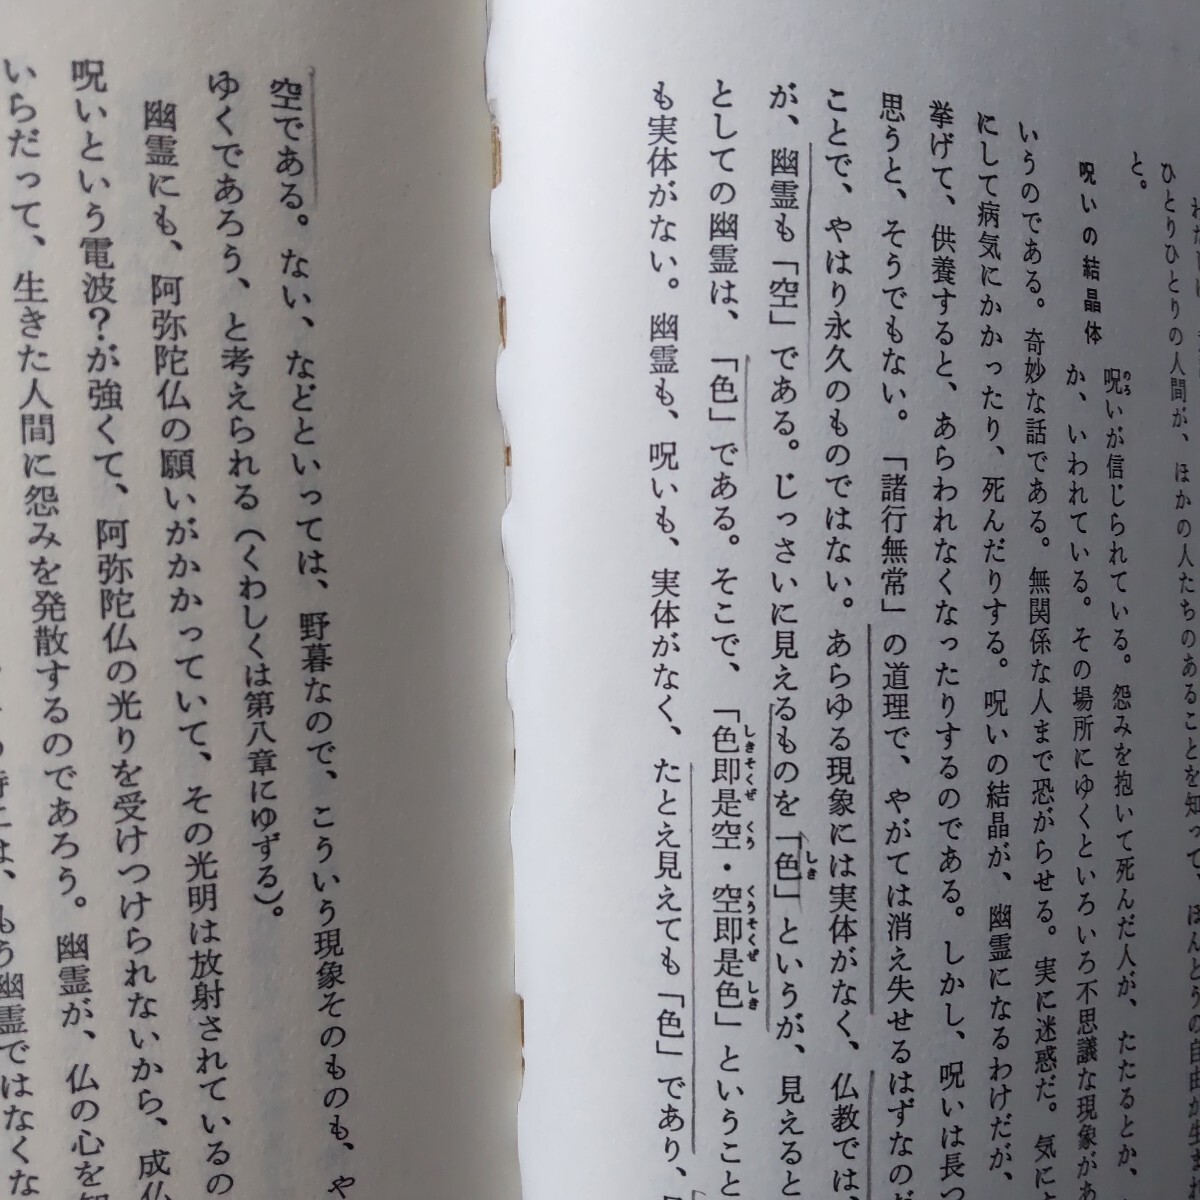 ひとりひとりの人間が、ほかの人たちのあることを知って、ほんとうの自由が生
と。
呪いの結晶体
呪いが信じられている。怨みを抱いて死んだ人が、たたるとか、
か、いわれている。その場所にゆくといろいろ不思議な現象があ
いうのである。奇妙な話である。無関係な人まで恐がらせる。実に迷惑だ。気に
にして病気にかかったり、死んだりする。呪いの結晶が、幽霊になるわけだが、
挙げて、供養すると、あらわれなくなったりするのである。しかし、呪いは長つ
思うと、そうでもない。「諸行無常」の道理で、やがては消え失せるはずなのだ
ことで、やはり永久のものではない。あらゆる現象には実体がなく、仏教では、
が、幽霊も「空」である。じっさいに見えるものを「色」というが、見えると
としての幽霊は、「色」である。そこで、「色即是空・空即是色」ということ
も実体がない。幽霊も、呪いも、実体がなく、たとえ見えても「色」であり、
空である。ない、などといっては、野暮なので、こういう現象そのものも、や
ゆくであろう、と考えられる（くわしくは第八章にゆずる）。
幽霊にも、阿弥陀仏の願いがかかっていて、その光明は放射されているの
呪いという電波？が強くて、阿弥陀仏の光りを受けつけられないから、成仏
いらだって、生きた人間に怨みを発散するのであろう。幽霊が、仏の心を知
は、もう幽霊ではなくな